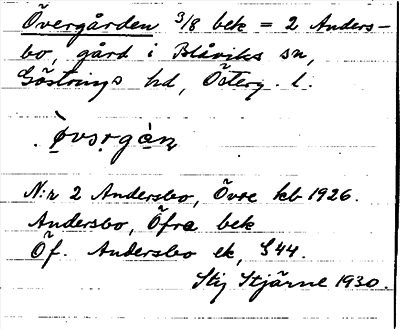 Övergården 3/8 bek = 2 Anders-
bo, gård i Blåviks sn,
Göstrings hd, Österg. l.
òvsrgàṇ
N:r 2 Andersbo, Övre kb 1926.
Andersbo, Öfra bek
Öf. Andersbo ek, S44.
Stig Stjärne 1930.